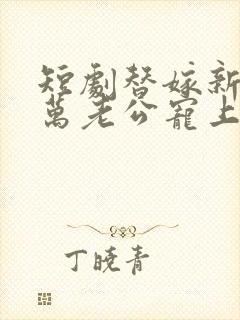 短劇替嫁新
萬老公寵上
丁曉青